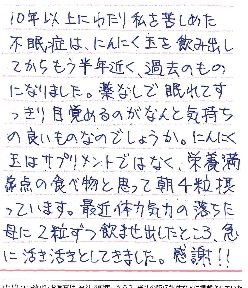 10年以上にわたり私を苦しめた
不眠症は、にんにく玉を飲み出し
てからもう半年近く、過去のもの
になりました。薬なしで眠れてす
っきり目覚めるのがなんと気持ち
の良いものなのでしょうか。にんにく
玉はサプリメントではなく、栄養満
点の食べ物と思って朝4粒摂
っています。最近体力気力の落ちた
母に2粒ずつ飲ませ出したところ、急
に活き活きとしてきました。感謝!!